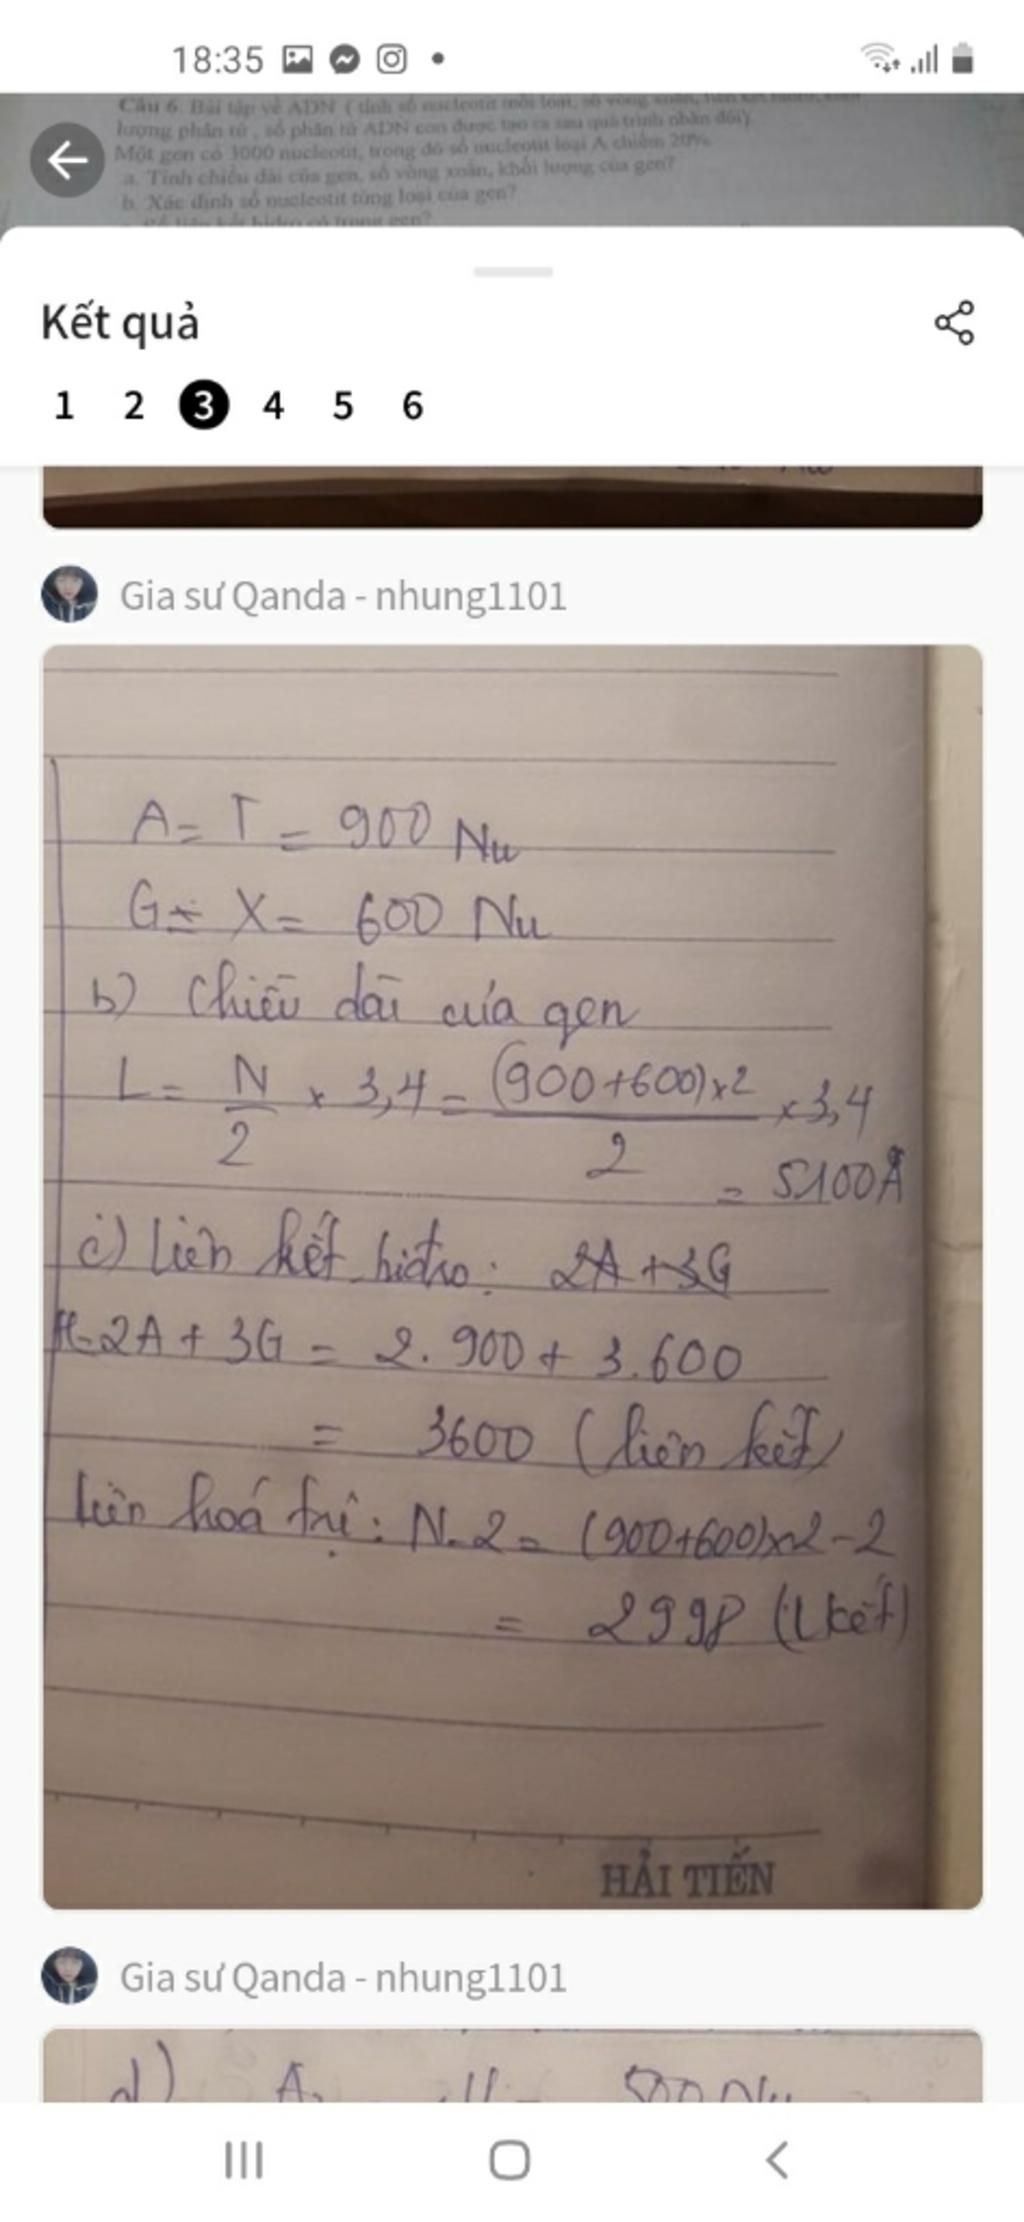 18:35
Câu 6. Bài tập về ADN ( tính số nucleotit mỗi loại, số vòng xoắn,
lượng phân tử , số phân tử ADN con được tạo ra sau quá trình nhân đôi)
Một gen có 3000 nucleotit, trong đó số nucleotit loại A chiếm 20%
a. Tính chiều dài của gen, số vòng xoắn, khối lượng của gen?
b. Xác định số nucleotit từng loại của gen?
Kết quả
1 2 3 4 5 6
Gia sư Qanda - nhung1101
A = T = 900 Nu
G = X = 600 Nu
b) Chiều dài của gen
L = N/2 × 3,4 = (900+600)×2/2 × 3,4
= 5100Å
c) Liên kết hiđro: 2A+3G
H=2A + 3G = 2.900 + 3.600
= 3600 (liên kết)
liên hoá trị: N-2 = (900+600)×2-2
= 2998 (lkết)
HẢI TIẾN
Gia sư Qanda - nhung1101
d)